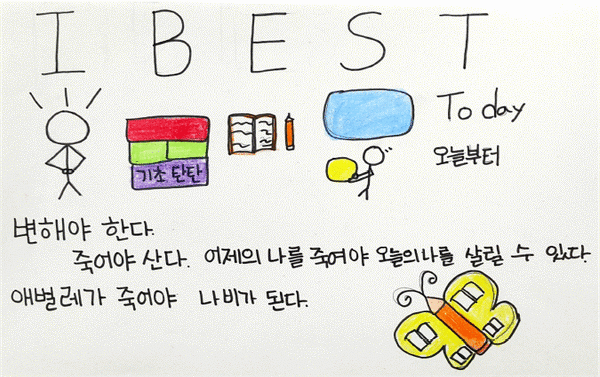 I BEST
Today
오늘부터
기초 탄탄
변해야 한다.
죽어야 산다. 어제의 나를 죽여야 오늘의 나를 살릴 수 있다.
애벌레가 죽어야 나비가 된다.